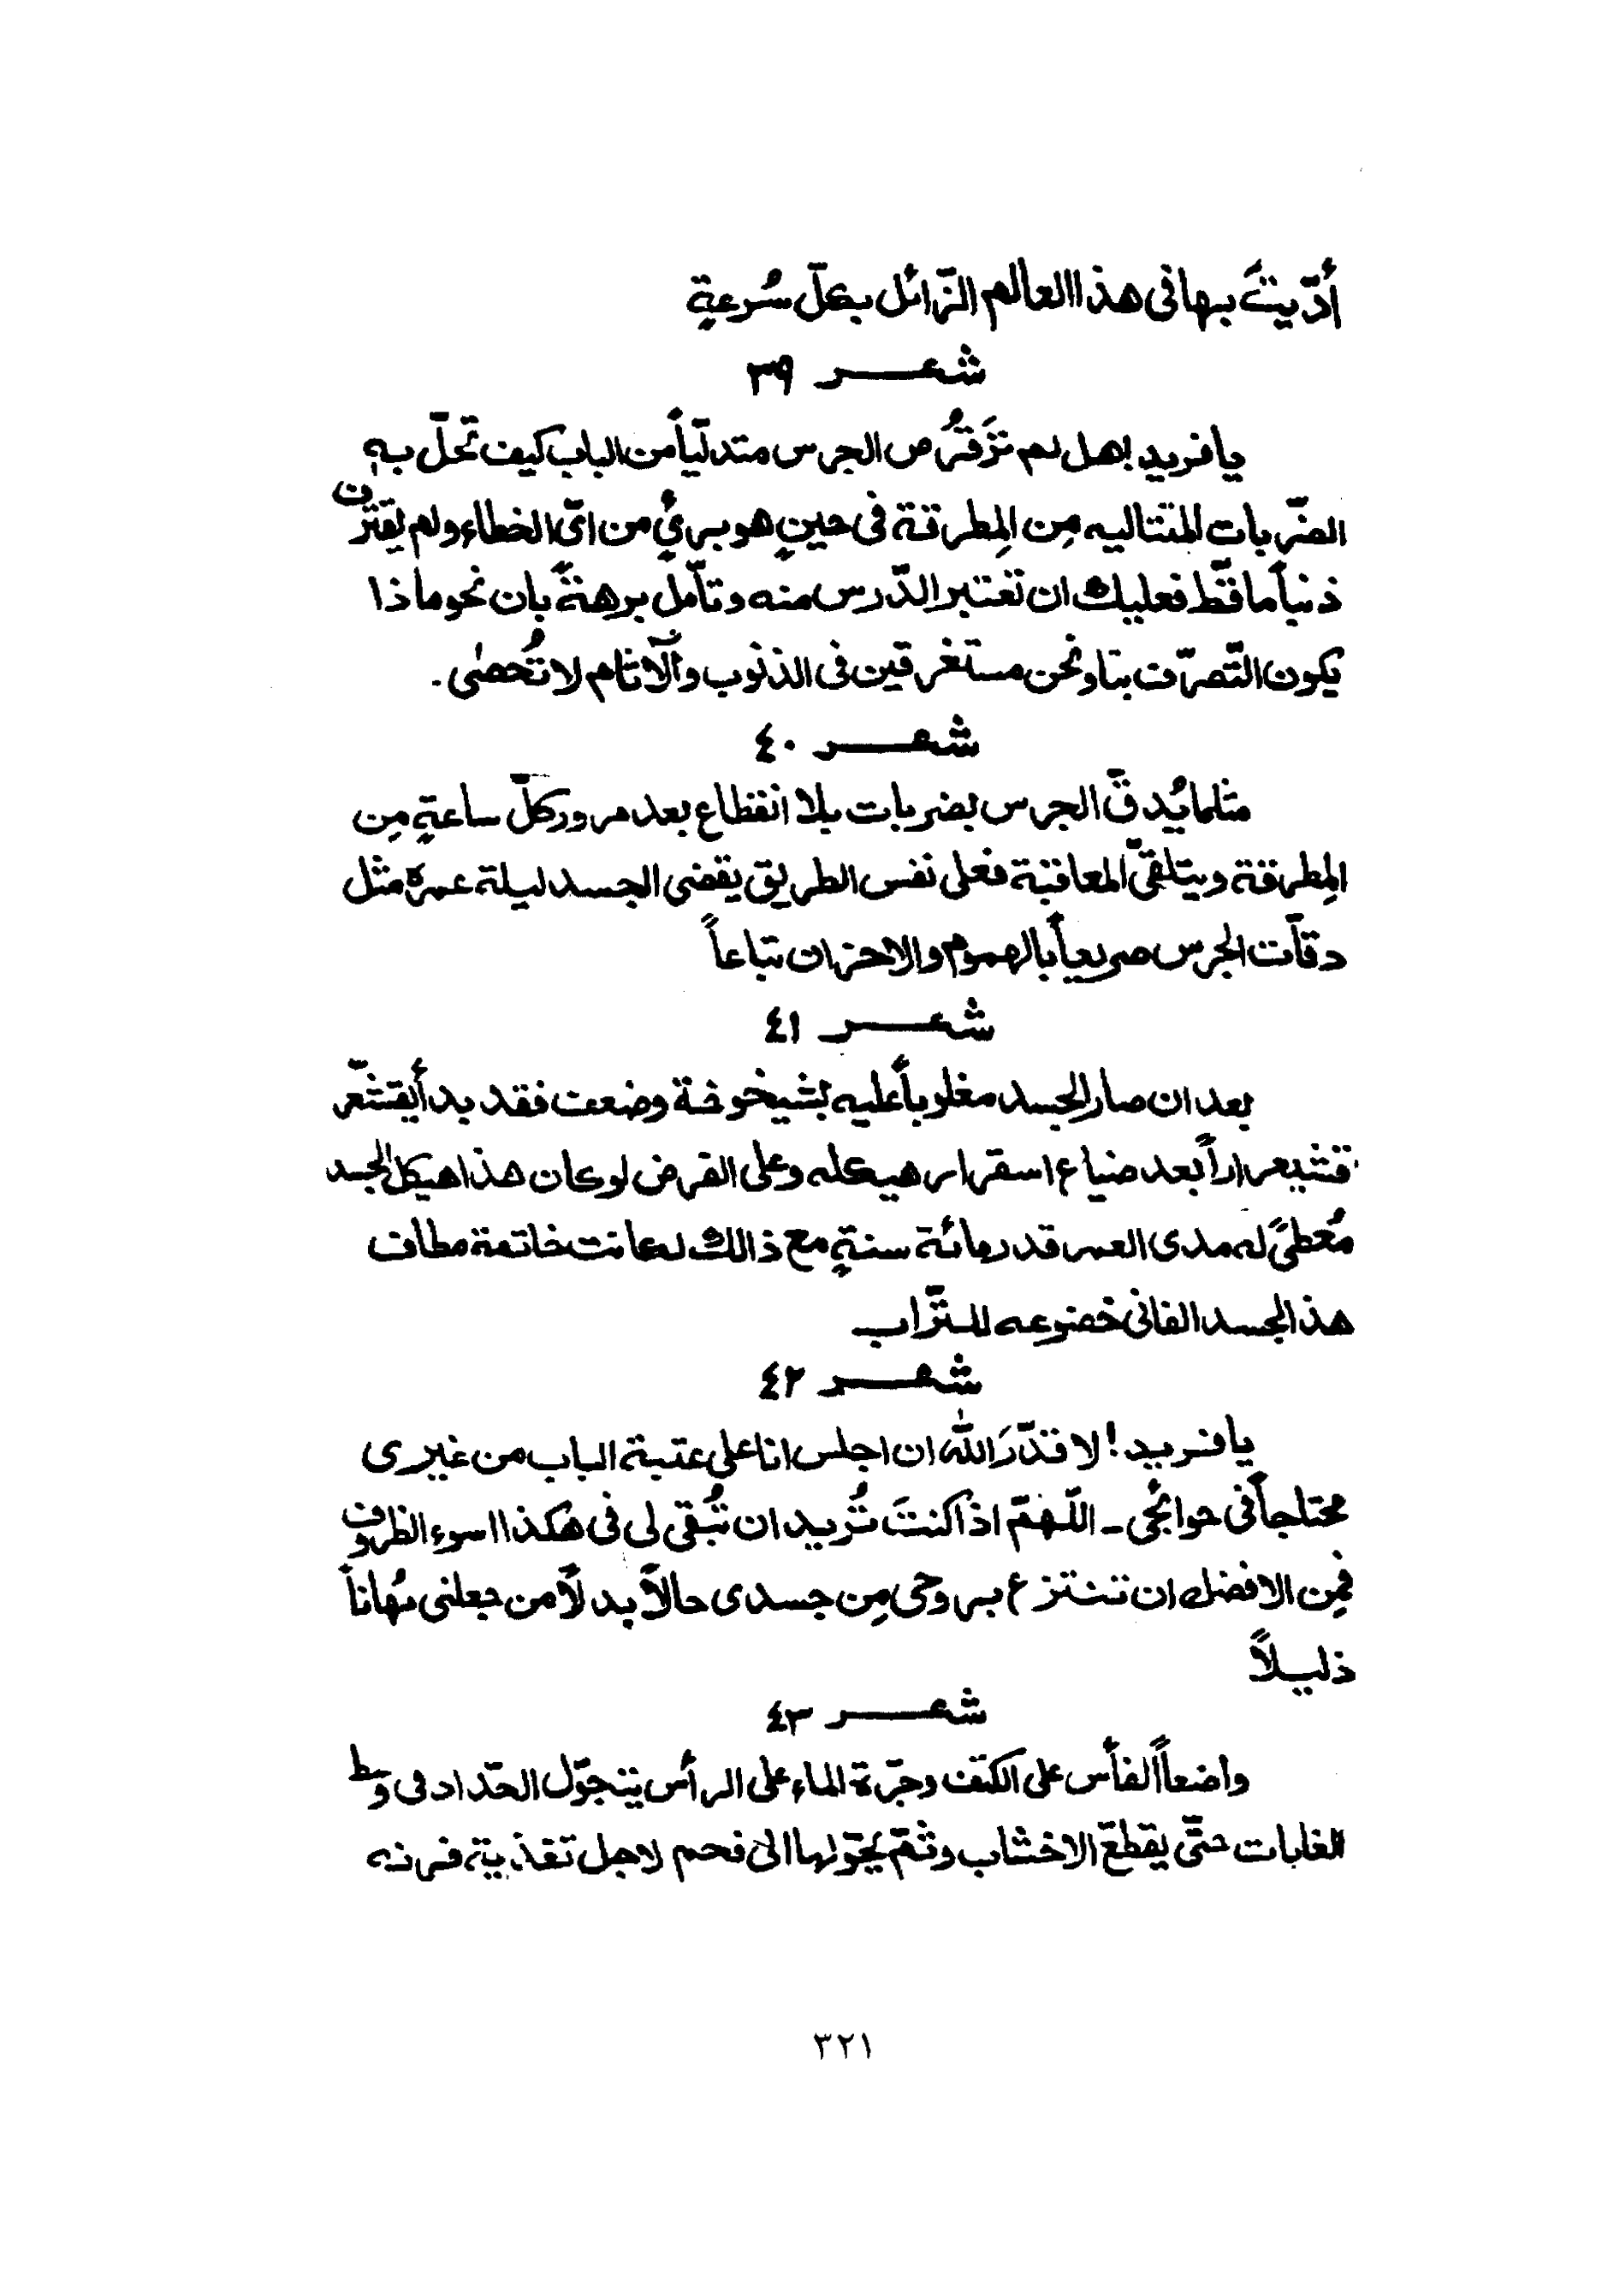 أدّيتَ بها فى هذا العالم الزّائل بكلّ سُرعةٍ
شعر ٣٩
يا فريد! هل لم تَرَ قُرص الجرس متدلّياً من الباب كيف تحلّ به
الضّربات المتتاليه مِن المِطرقة فى حينٍ هو برئٍ من اىّ الخطاء ولم يقترن
ذنباً ما قطّ فعليك ان تعتبر الدّرس منه وتأمل برهةً بان نحو ماذا
يكون التّصرّف بنا ونحن مستغرقين فى الذنوب والآثام لا تُحصٰى .
شعر ٤٠
مثلما يُدقّ الجرس بضربات بلا انقطاع بعد مرور كلّ ساعةٍ مِن
المِطرقة ويتلقىّ المعاقبة فعلى نفس الطريق يقضى الجسد ليلة عمره مثل
دقاّت الجرس صريعاً بالهموم والاحزان تباعاً
شعر ٤١
بعد ان صار الجسد مغلوباً عليه بشيخوخة وضعف فقد بدأ يقشعّر
قشيعراراً بعد ضياع اسقرار هيكله وعلى الفرض لو كان هذا هيكل الجسد
مُعطىً له مدى العمر قدر مائة سنةٍ مع ذالك لكانت خاتمة مطاف
هذ الجسد الفانى خضوعه للتّراب
شعر ٤٢
يا فريد! لا قدّرَ الله ان اجلس انا على عتبة الباب من غيرى
محتاجاً فى حوائجى ـ اللّهمّ اذا كنتَ تُريد ان تُبقى لى فى هكذا اسوء الظروف
فمِن الافضل ان تنتزع بروحى مِن جسدى حالاً بدلاً من جعلنى مُهاناً
ذليلاً
شعر ٤٣
واضعاً الفأس على الكتف وجرّة الماء على الرأس يتجوّل الحدّاد فى وسط
الغابات حتّى يقطع الاخشاب وثمّ يحوّلها الى فحم لاجل تغذية فرنه
٣٢١